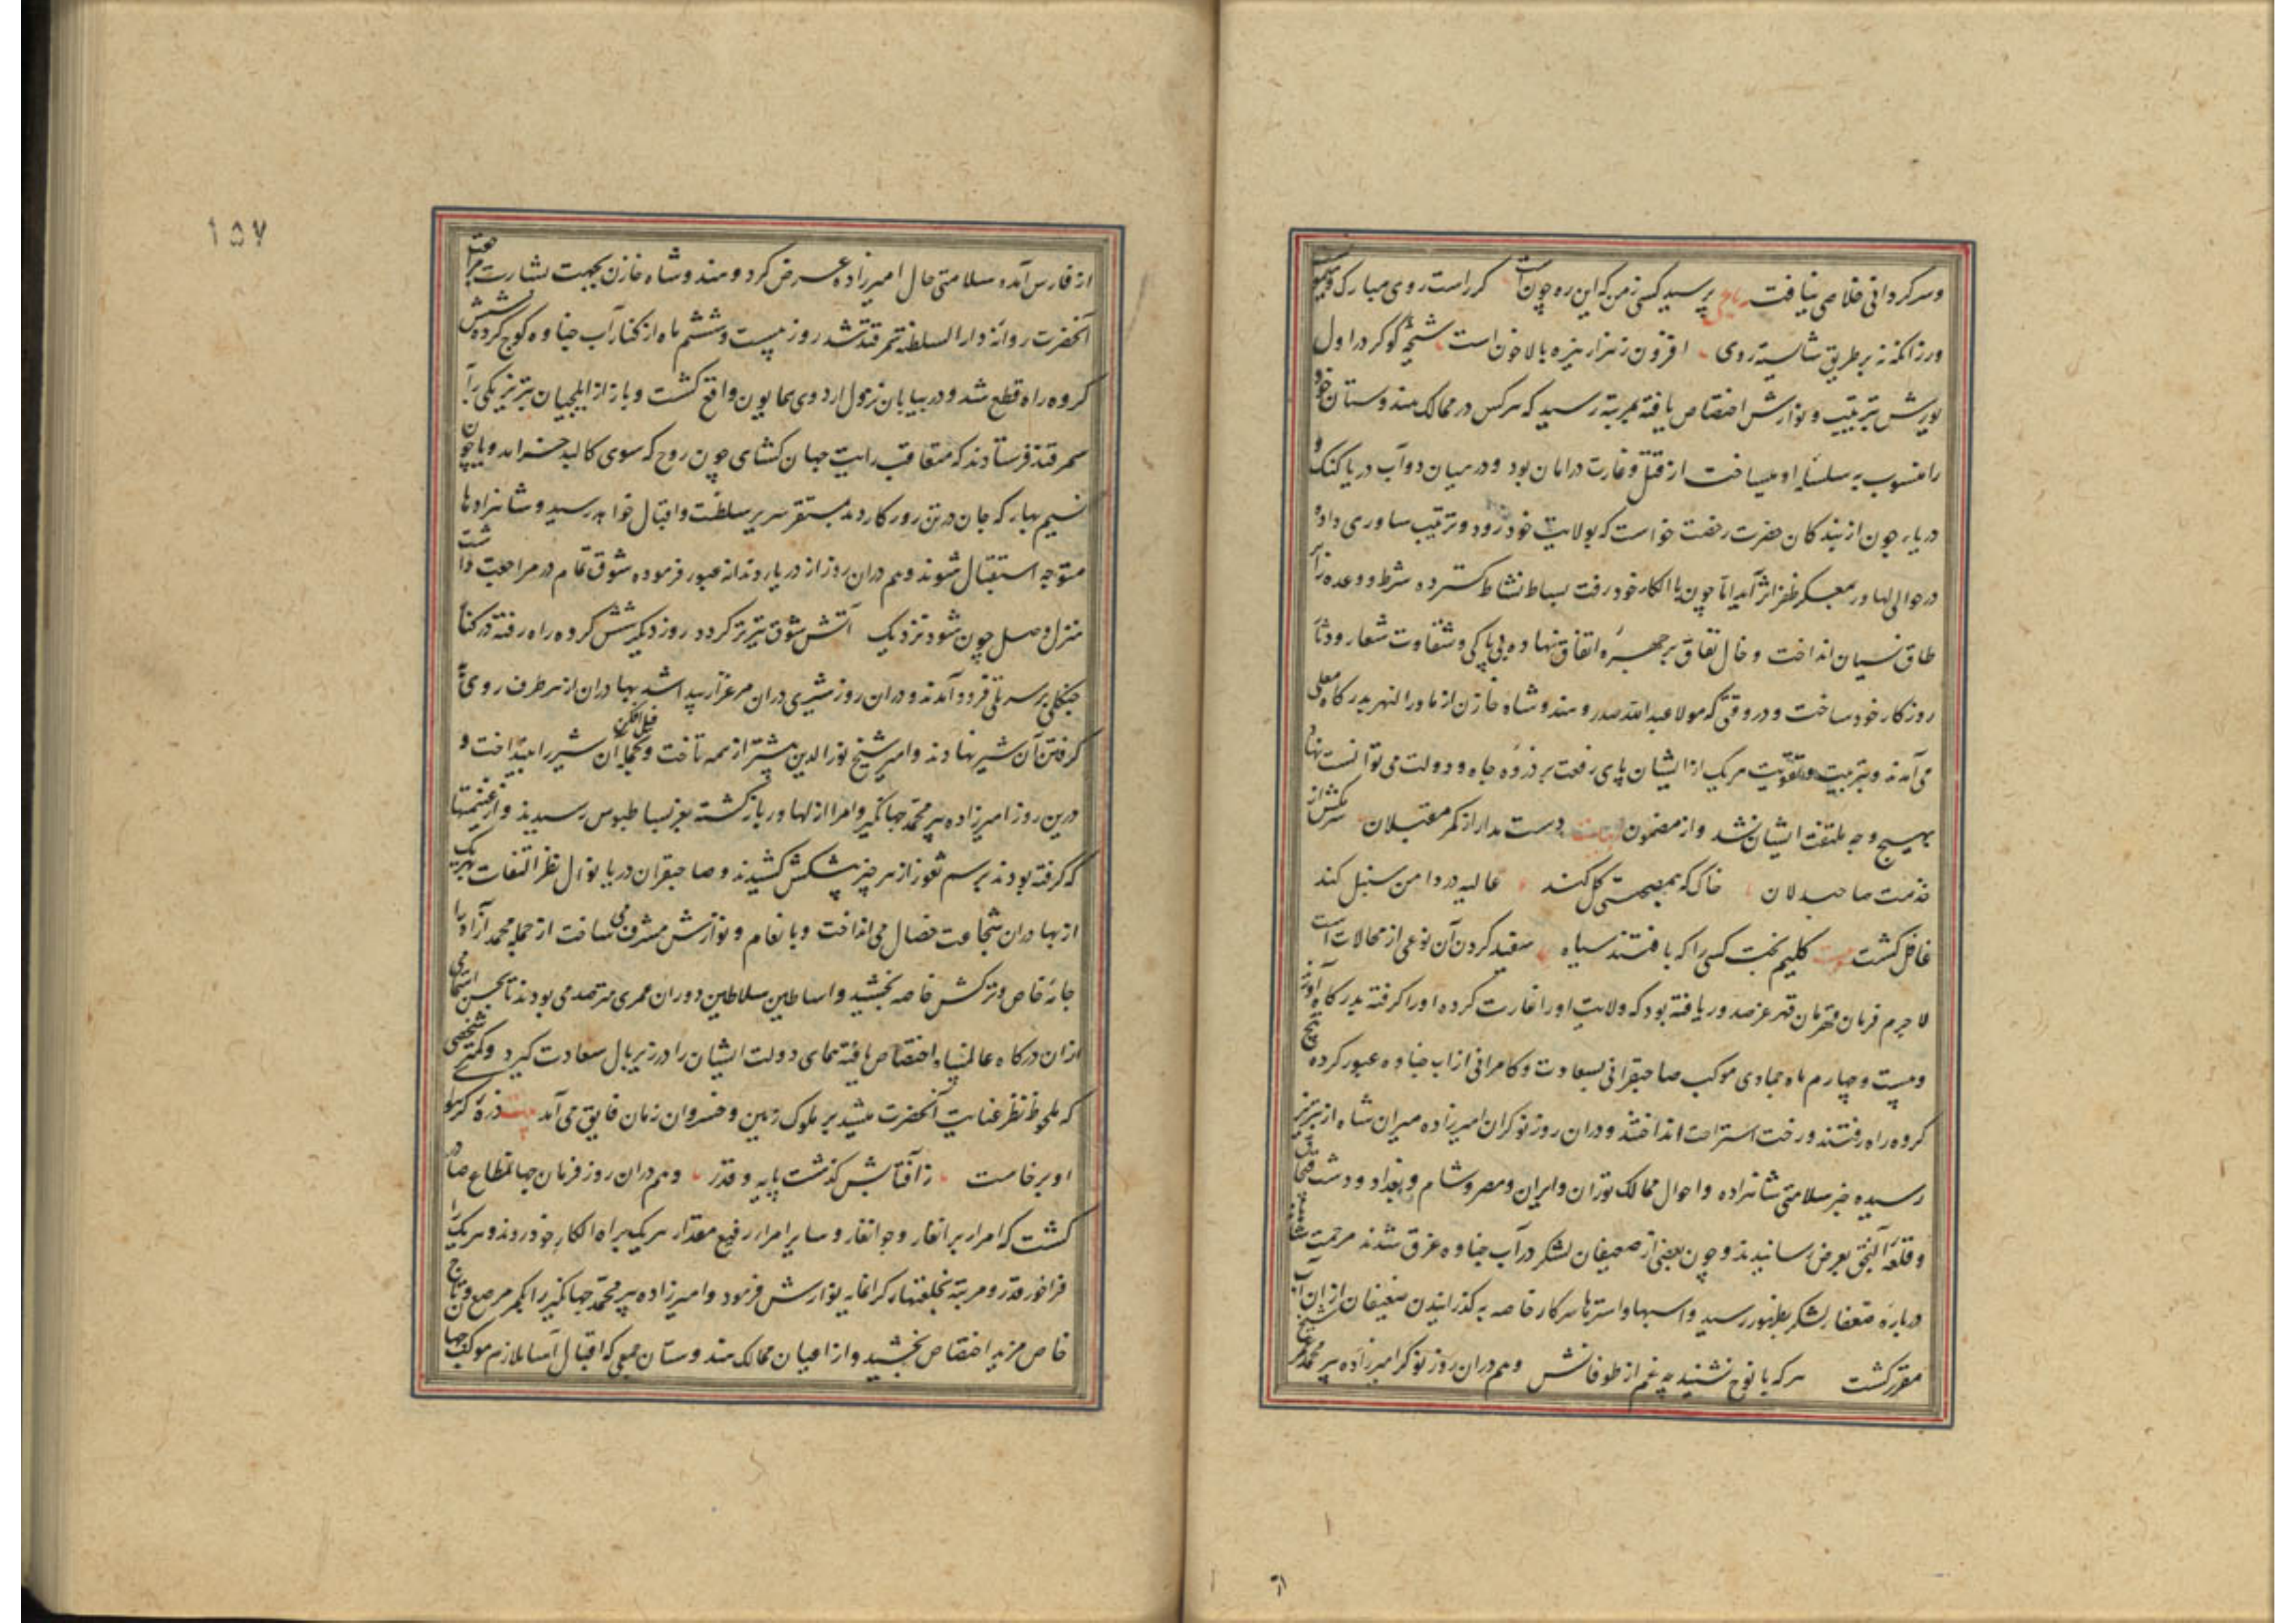 وسرکردانی خلاصی نیافت رباعی پرسید کسی زمن که این ره چون است کر راست روی مبارک و میمون
ورزانکه نه بر طریق شایسته روی افزون ز هزار نیزه بالا خون است شیخه کوکر در اول
یورش بتربیت و نوازش اختصاص یافته بمرتبه رسید که هرکس در ممالک هندوستان خود
را منسوب به سلسله او میساخت از قتل و غارت در امان بود و در میان دو آب دریا کنک و
دریا جون از بندکان حضرت رخصت خواست که بولایت خود رود و ترتیب ساوری داده
در حوالی لهاور بمعسکر ظفر اثر آید اما چون با الکار خود رفت بساط نشاط کسترده شرط و وعده را بر
طاق نسیان انداخت و خال نفاق بر چهره اتفاق نهاده بی پاکی و شقاوت شعار و دثار
روزکار خود ساخت و در وقتی که مولا عبدالله صدر و هندوشاه خازن از ماورالنهر بدرکاه معلی
می آمدند و بتربیت و تقویت هریک از ایشان پای رفعت بر ذروه جاه و دولت می توانست نهاد
بهیچ وجه ملتفت ایشان نشد و از مضمون دست مدار از کمر مقبلان سر مکش از
خدمت صاحبدلان خاک که همصحبتی کل کند غالیه در دامن سنبل کند
غافل کشت بیت کلیم بخت کسی را که بافتند سیاه سفید کردن آن نوعی از محالات است
لاجرم فرمان قهرمان قهر عز صدور یافته بود که ولایت او را غارت کرده او را کرفته بدرکاه آورند
و بیست و چهارم ماه جمادی موکب صاحبقرانی بسعادت و کامرانی از آب جناوه عبور کرده پنج
کروه راه رفتند و رخت استراحت انداختند و دران روز نوکران امیرزاده میران شاه از تبریز
رسیده خبر سلامتی شاهزاده و احوال ممالک توران و ایران و مصر و شام و بغداد و دشت قبچاق
و قلعه النجق بعرض رسانیدند و چون بعضی از ضعیفان لشکر در آب جناوه غرق شدند مرحمت
درباره ضعفا لشکر بظهور رسید و اسبها و استرها سرکار خاصه به کذرانیدن ضعیفان ازان آب
مقرر کشت هرکه با نوح نشیند چه غم از طوفانش و هم دران روز نوکر امیرزاده پیر محمد
۱۵۷
از فارس آمده سلامتی حال امیرزاده عرض کرد و هندوشاه خازن بجهت بشارت مراجعت
آنحضرت روانه دارالسلطنه سمرقند شد روز بیست و ششم ماه از کنار آب جناوه کوچ کرده شش
کروه راه قطع شد و در بیابان نزول اردوی همایون واقع کشت و باز از ایلچیان تبریز یکی را
سمرقند فرستادند که متعاقب رایت جهان کشای چون روح که سوی کالبد خرامد و یا چون
نسیم بهار که جان در تن روزکار دمد بمستقر سریر سلطنت و اقبال خواهد رسید و شاهزادها
متوجه استقبال شوند و هم دران روز از دریا روندانه عبور فرموده شوق تمام در مراجعت داشت
منزل وصل چون شود نزدیک آتش شوق تیزتر کردد روز دیکر شش کروه راه رفته در کنار
جنکلی بر سر تلی فرود آمدند و دران روز شیری دران مرغزار پیدا شد بهادران از هر طرف روی به
کرفتن آن شیر نهادند و امیر شیخ نورالدین پیشتر از همه تاخت و بحمله پیل افکن آن شیر را بینداخت و
درین روز امیرزاده پیر محمد جهانکیر و امرا از لهاور باز کشته بعز بساط بوس رسیدند و از غنیمتها
که کرفته بودند برسم تقوز از هر چیز پیشکش کشیدند و صاحبقران دریا نوال نظر التفات بهر یک
از بهادران شجاعت خصال می انداخت و بانعام و نوازش مشرف می ساخت از جمله محمد آزاد را
جامه خاص و ترکش خاصه بخشید و اساطین سلاطین دوران عمری مترصد می بودند تا بحسن
ازان درکاه عالمپناه اختصاص یافته همای دولت ایشان را در زیر بال سعادت کیرد و کمتر شخصی
که ملحوظ نظر عنایت آنحضرت میشد بر ملوک زمین و خسروان زمان فایق می آمد بیت ذره کز هوا
او برخاست ز آفتابش کذشت پایه و قدر و هم دران روز فرمان جهانمطاع صادر
کشت که امراء برانغار و جوانغار و سایر امراء رفیع مقدار هریک براه الکاء خود روند و هریک را
فراخور قدر و مرتبه بخلعتها کرانمایه نوازش فرمود و امیرزاده پیر محمد جهانکیر را کمر مرصع و تاج
خاص مزید اختصاص بخشید و از اعیان ممالک هندوستان جمعی که اقبال آسا ملازم موکب